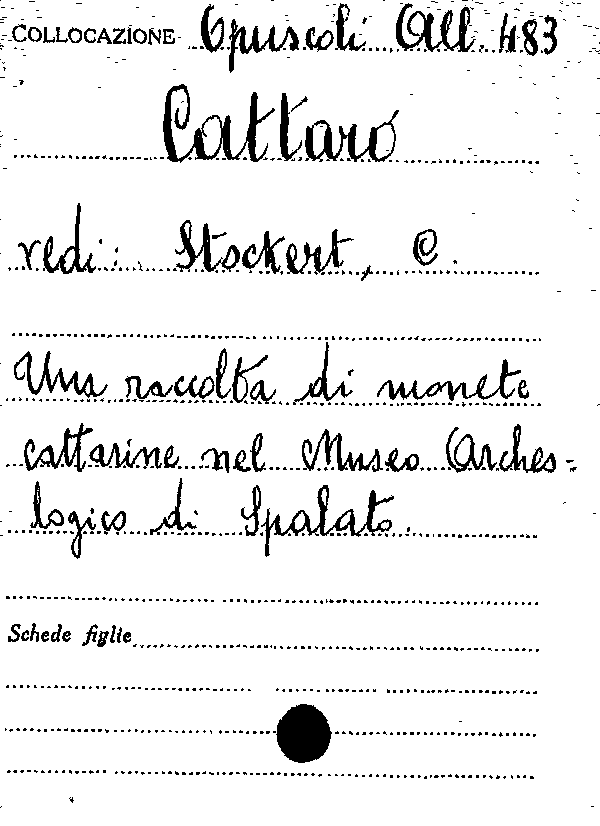 COLLOCAZIONE Opuscoli All. 483
Cattaro
vedi: Stockert, C.
Una raccolta di monete
cattarine nel Museo Archeo-
logico di Spalato.
Schede figlie